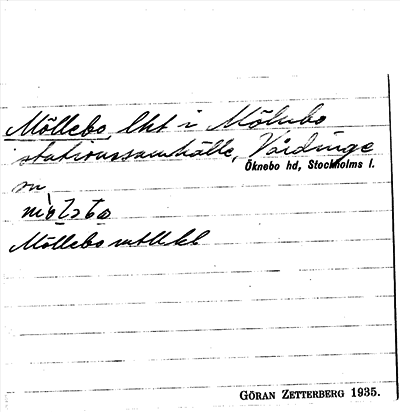 Möllebo, lht i Mölnbo
stationssamhälle, Vårdinge
Öknebo hd, Stockholms l.
sn
Möllebo
GÖRAN ZETTERBERG 1935.